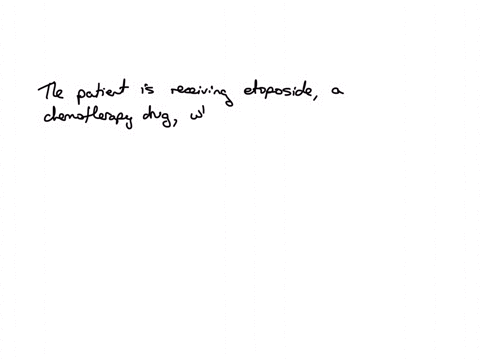 The patient is receiving etoposide, a
chemotherapy drug,